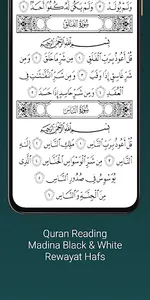 وَلَمْ يُولَدْ ٣ وَلَمْ يَكُن لَّهُۥ كُفُوًا أَحَدٌۢ ٤
سُورَةُ الفَلَقِ
بِسْمِ ٱللَّهِ ٱلرَّحْمَٰنِ ٱلرَّحِيمِ
قُلْ أَعُوذُ بِرَبِّ ٱلْفَلَقِ ١ مِن شَرِّ مَا خَلَقَ ٢ وَمِن
شَرِّ غَاسِقٍ إِذَا وَقَبَ ٣ وَمِن شَرِّ ٱلنَّفَّٰثَٰتِ فِي
ٱلْعُقَدِ ٤ وَمِن شَرِّ حَاسِدٍ إِذَا حَسَدَ ٥
سُورَةُ النَّاسِ
بِسْمِ ٱللَّهِ ٱلرَّحْمَٰنِ ٱلرَّحِيمِ
قُلْ أَعُوذُ بِرَبِّ ٱلنَّاسِ ١ مَلِكِ ٱلنَّاسِ ٢
إِلَٰهِ ٱلنَّاسِ ٣ مِن شَرِّ ٱلْوَسْوَاسِ ٱلْخَنَّاسِ ٤ ٱلَّذِي
يُوَسْوِسُ فِي صُدُورِ ٱلنَّاسِ ٥
مِنَ ٱلْجِنَّةِ وَٱلنَّاسِ ٦
Quran Reading
Madina Black & White
Rewayat Hafs